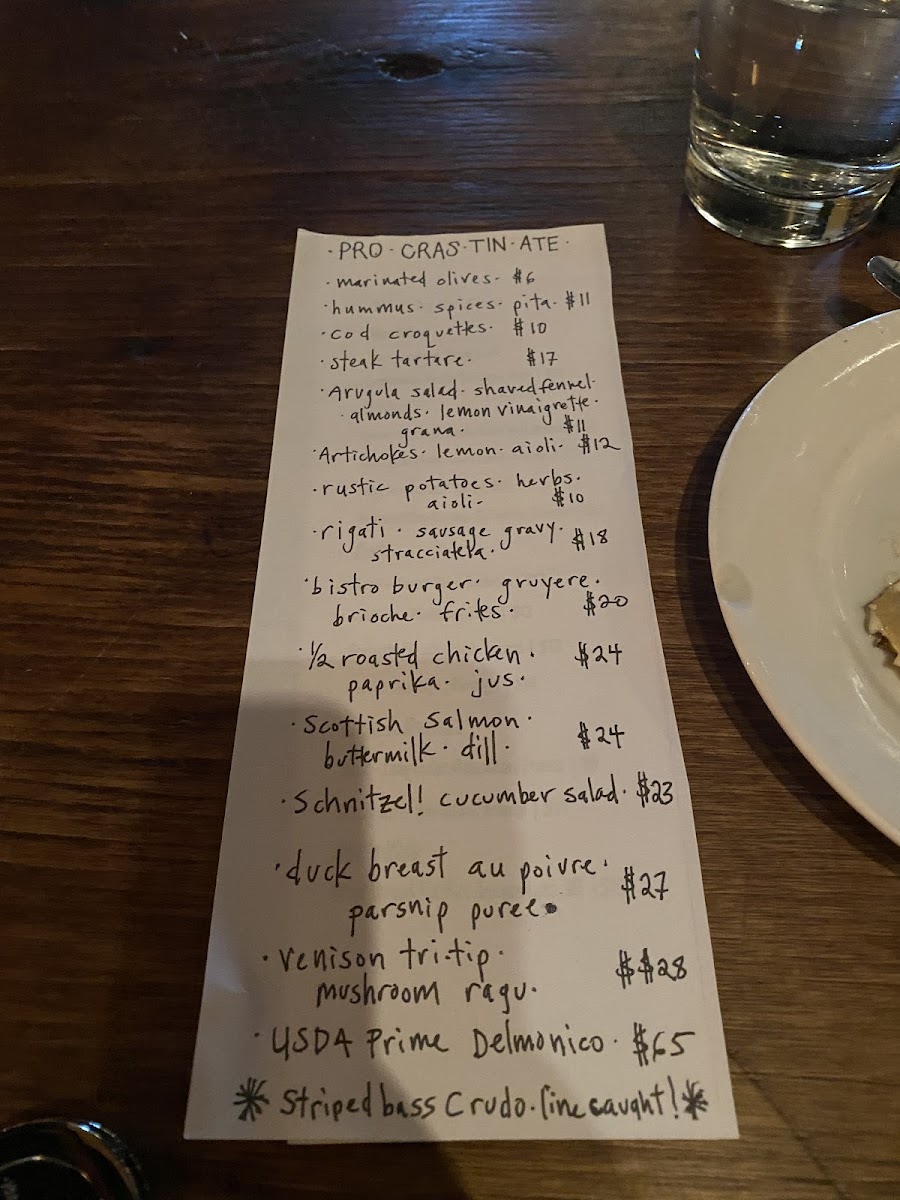 · PRO · CRAS · TIN · ATE ·
· marinated olives · $6
· hummus · spices · pita · $11
· cod croquettes · $10
· steak tartare · $17
· Arugula salad · shaved fennel ·
· almonds · lemon vinaigrette ·
grana · $11
· Artichokes · lemon · aioli · $12
· rustic potatoes · herbs ·
aioli · $10
· rigati · sausage gravy ·
stracciatella · $18
· bistro burger · gruyere ·
brioche · frites · $20
· 1/2 roasted chicken · $24
paprika · jus ·
· Scottish Salmon ·
buttermilk · dill · $24
· Schnitzel! cucumber salad · $23
· duck breast au poivre ·
parsnip puree · $27
· venison tri-tip ·
mushroom ragu · $$28
· USDA Prime Delmonico · $65
* Striped bass Crudo · line caught! *